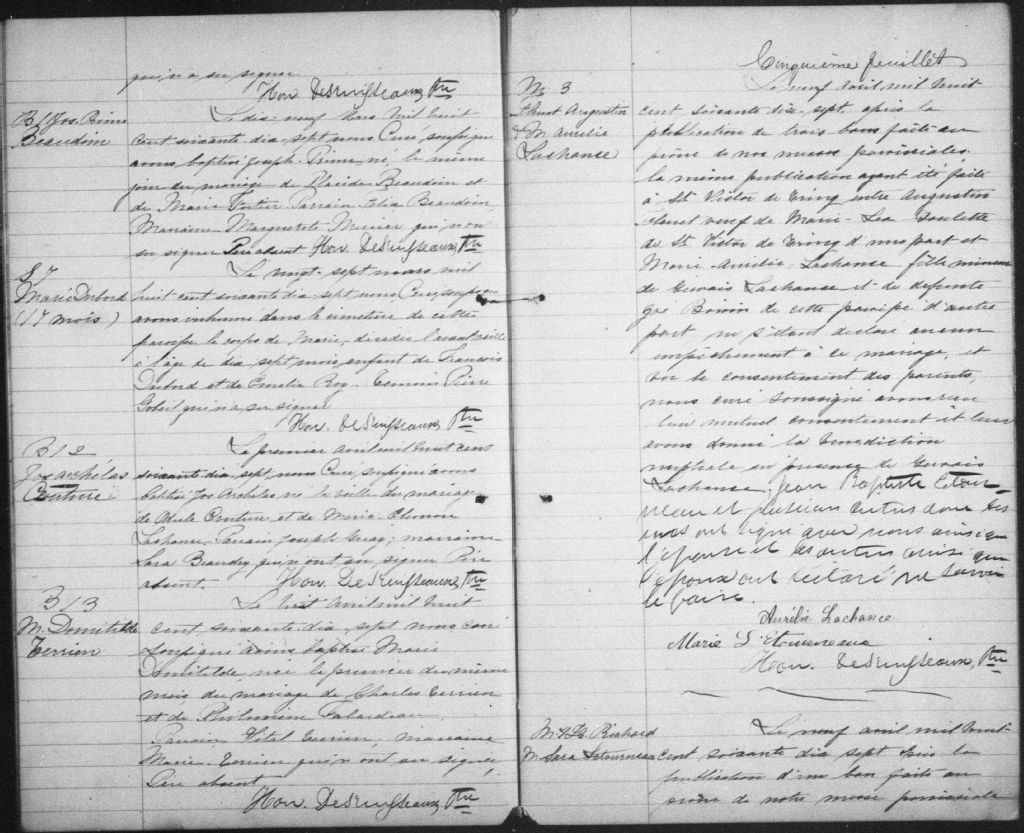 qui n'a su signer
Hon. Desruisseaux Ptre
B / Jos. Prime
Beaudoin
Le dix-neuf Mars mil huit
cent soixante dix-sept nous Curé soussigné
avons baptisé Joseph Prime, né le même
jour du mariage de Placide Beaudoin et
de Marie Fortier Parrain Beaudoin,
Marraine Marguerite Mercier qui n'ont
su signer Père absent Hon. Desruisseaux, Ptre
S 7
Marie Dubord
(17 mois)
Le vingt-sept mars mil
huit cent soixante dix-sept nous Curé soussigné
avons inhumé dans le cimetière de cette
paroisse le corps de Marie, décédée l'avant veille
à l'âge de dix sept mois, enfant de François
Dubord et de Roy. Témoin Pierre
Gobeil qui n'a su signer
Hon. Desruisseaux Ptre
B 12
Jos archélas
Couture
Le premier avril mil huit cent
soixante dix sept, nous Curé soussigné avons
baptisé Jos Archélas né la veille du mariage
de Couture et de Marie
Lachance Parrain Joseph Guay; marraine
Sara Beaudry qui n'ont su signer Père
absent. Hon. Desruisseaux, Ptre
B 13
M. Domitilde
Terrien
Le huit Avril mil huit
cent soixante dix-sept nous curé
soussigné avons baptisé Marie
Domitilde, née le premier du même
mois du mariage de Charles Terrien
et de Philomène Falardeau.
Parrain Vital Terrien, marraine
Marie Terrien qui n'ont su signer,
Père absent
Hon. Desruisseaux Ptre
Cinquième feuillet
M 3
Augustin
& M. Aurélie
Lachance
Le neuf Avril mil huit
cent soixante dix-sept, après la
publication de trois bans faite au
prône de nos messes paroissiales
la même publication ayant été faite
à St Victor de Tring entre Augustin
veuf de Marie-Léa Doulette
de St Victor de Tring d'une part et
Marie Aurélie Lachance fille mineure
de Gervais Lachance et de défunte
Boivin de cette paroisse d'autre
part ne s'étant déclaré aucun
empêchement à ce mariage, et
vu le consentement des parents,
nous curé soussigné avons reçu
leur mutuel consentement et leur
avons donné la bénédiction
nuptiale en présence de Gervais
Lachance, Jean Baptiste Létour-
neau et plusieurs autres dont les
uns ont signé avec nous ainsi que
l'épouse et les autres ainsi que
l'époux ont déclaré ne savoir
le faire.
Aurélie Lachance
Marie L'Etourneau
Hon. Desruisseaux, Ptre
Richard
M. Sara Létourneau
Le neuf avril mil huit
cent soixante dix sept après la
publication d'un ban faite au
prône de notre messe paroissiale